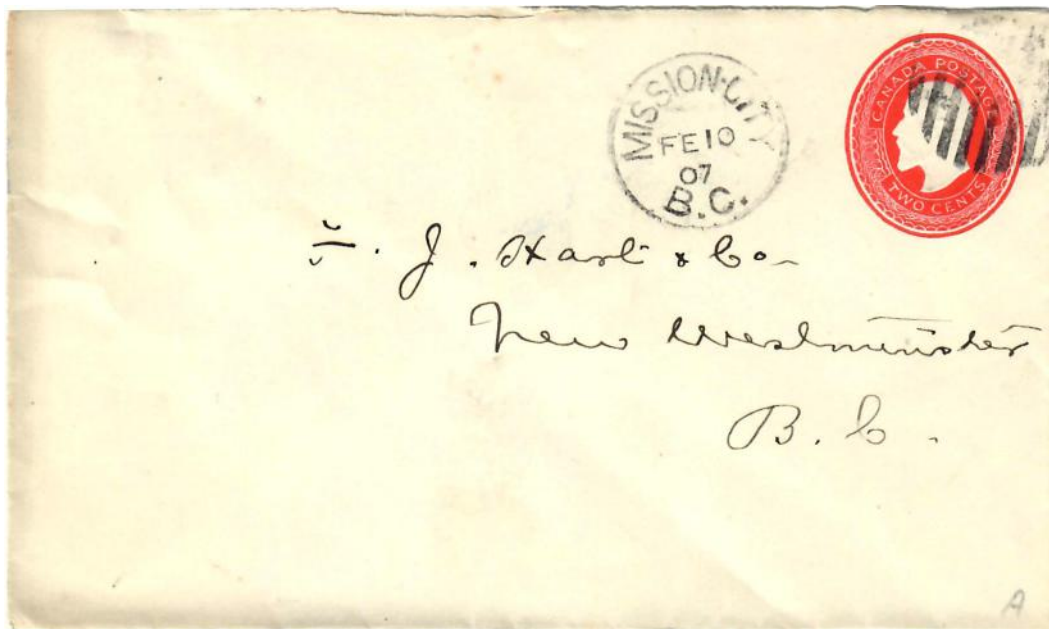 MISSION·CITY
FE 10
07
B.C.
CANADA POSTAGE
TWO CENTS
J. Hart & Co-
New Westminster
B. C.
A